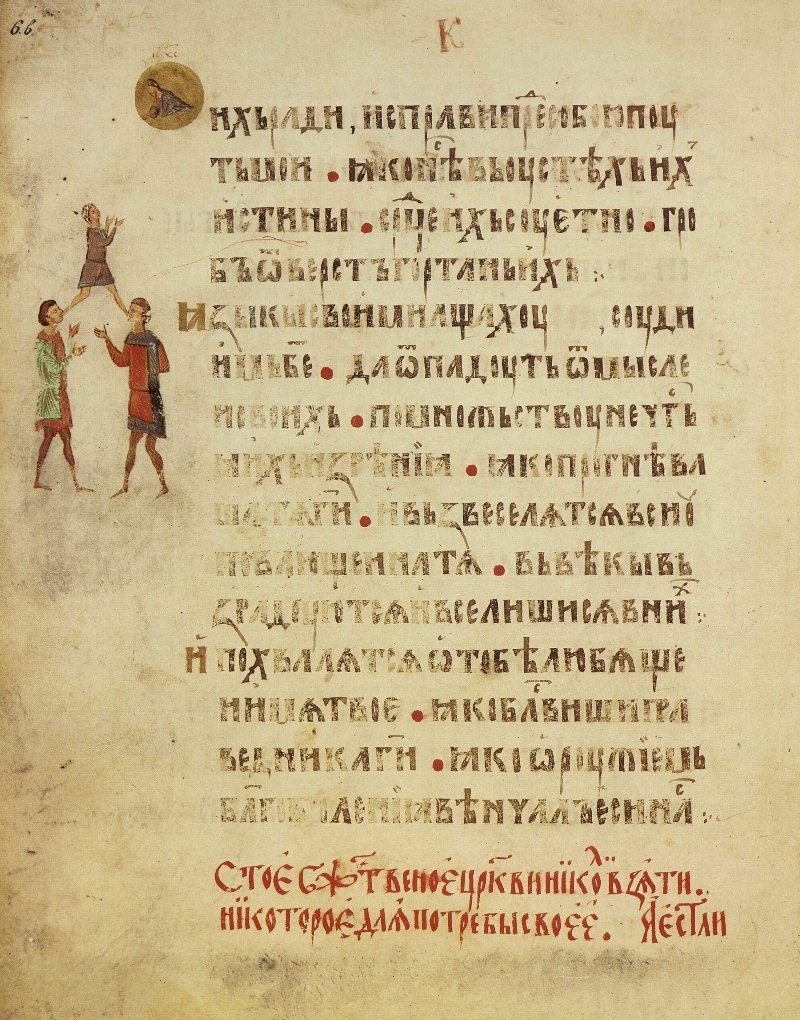 66 К
ихъради, исправипрⷣесобоюпоу
тьмои . ꙗконⷭ҇ѣвьоустѣхъихⷤ
истины . срⷣцеихъсоуетно . гро
бъѿверстъгортаньихъ :
ꙗзыкысвоимилщахоу , соуди
имъб҃е . даѿпадоутьѿмысле
исвоихъ . помножьствоунечⷭ҇ть
ихъизрѣнїи . ꙗкопрогнѣва
шатѧг҃и . ивъзвеселѧтсѧвсиѹ
повающеинатѧ . вьвѣкывъ
зрадоуютсѧивселишисѧвниⷯ :
ипохвалѧтсѧѡтобѣлюбѧще
иимѧтвое . ꙗкоблⷭ҇вишипра
ведникаг҃и . ꙗкоѡроужїемь
бл҃говоленїꙗвѣнчалъесинⷭ҇а :
Стоебжⷭ҇твеноецрⷦ҇винїколⷤ взѧти.
нїкотороедлѧпотребысвоеє. Аестли